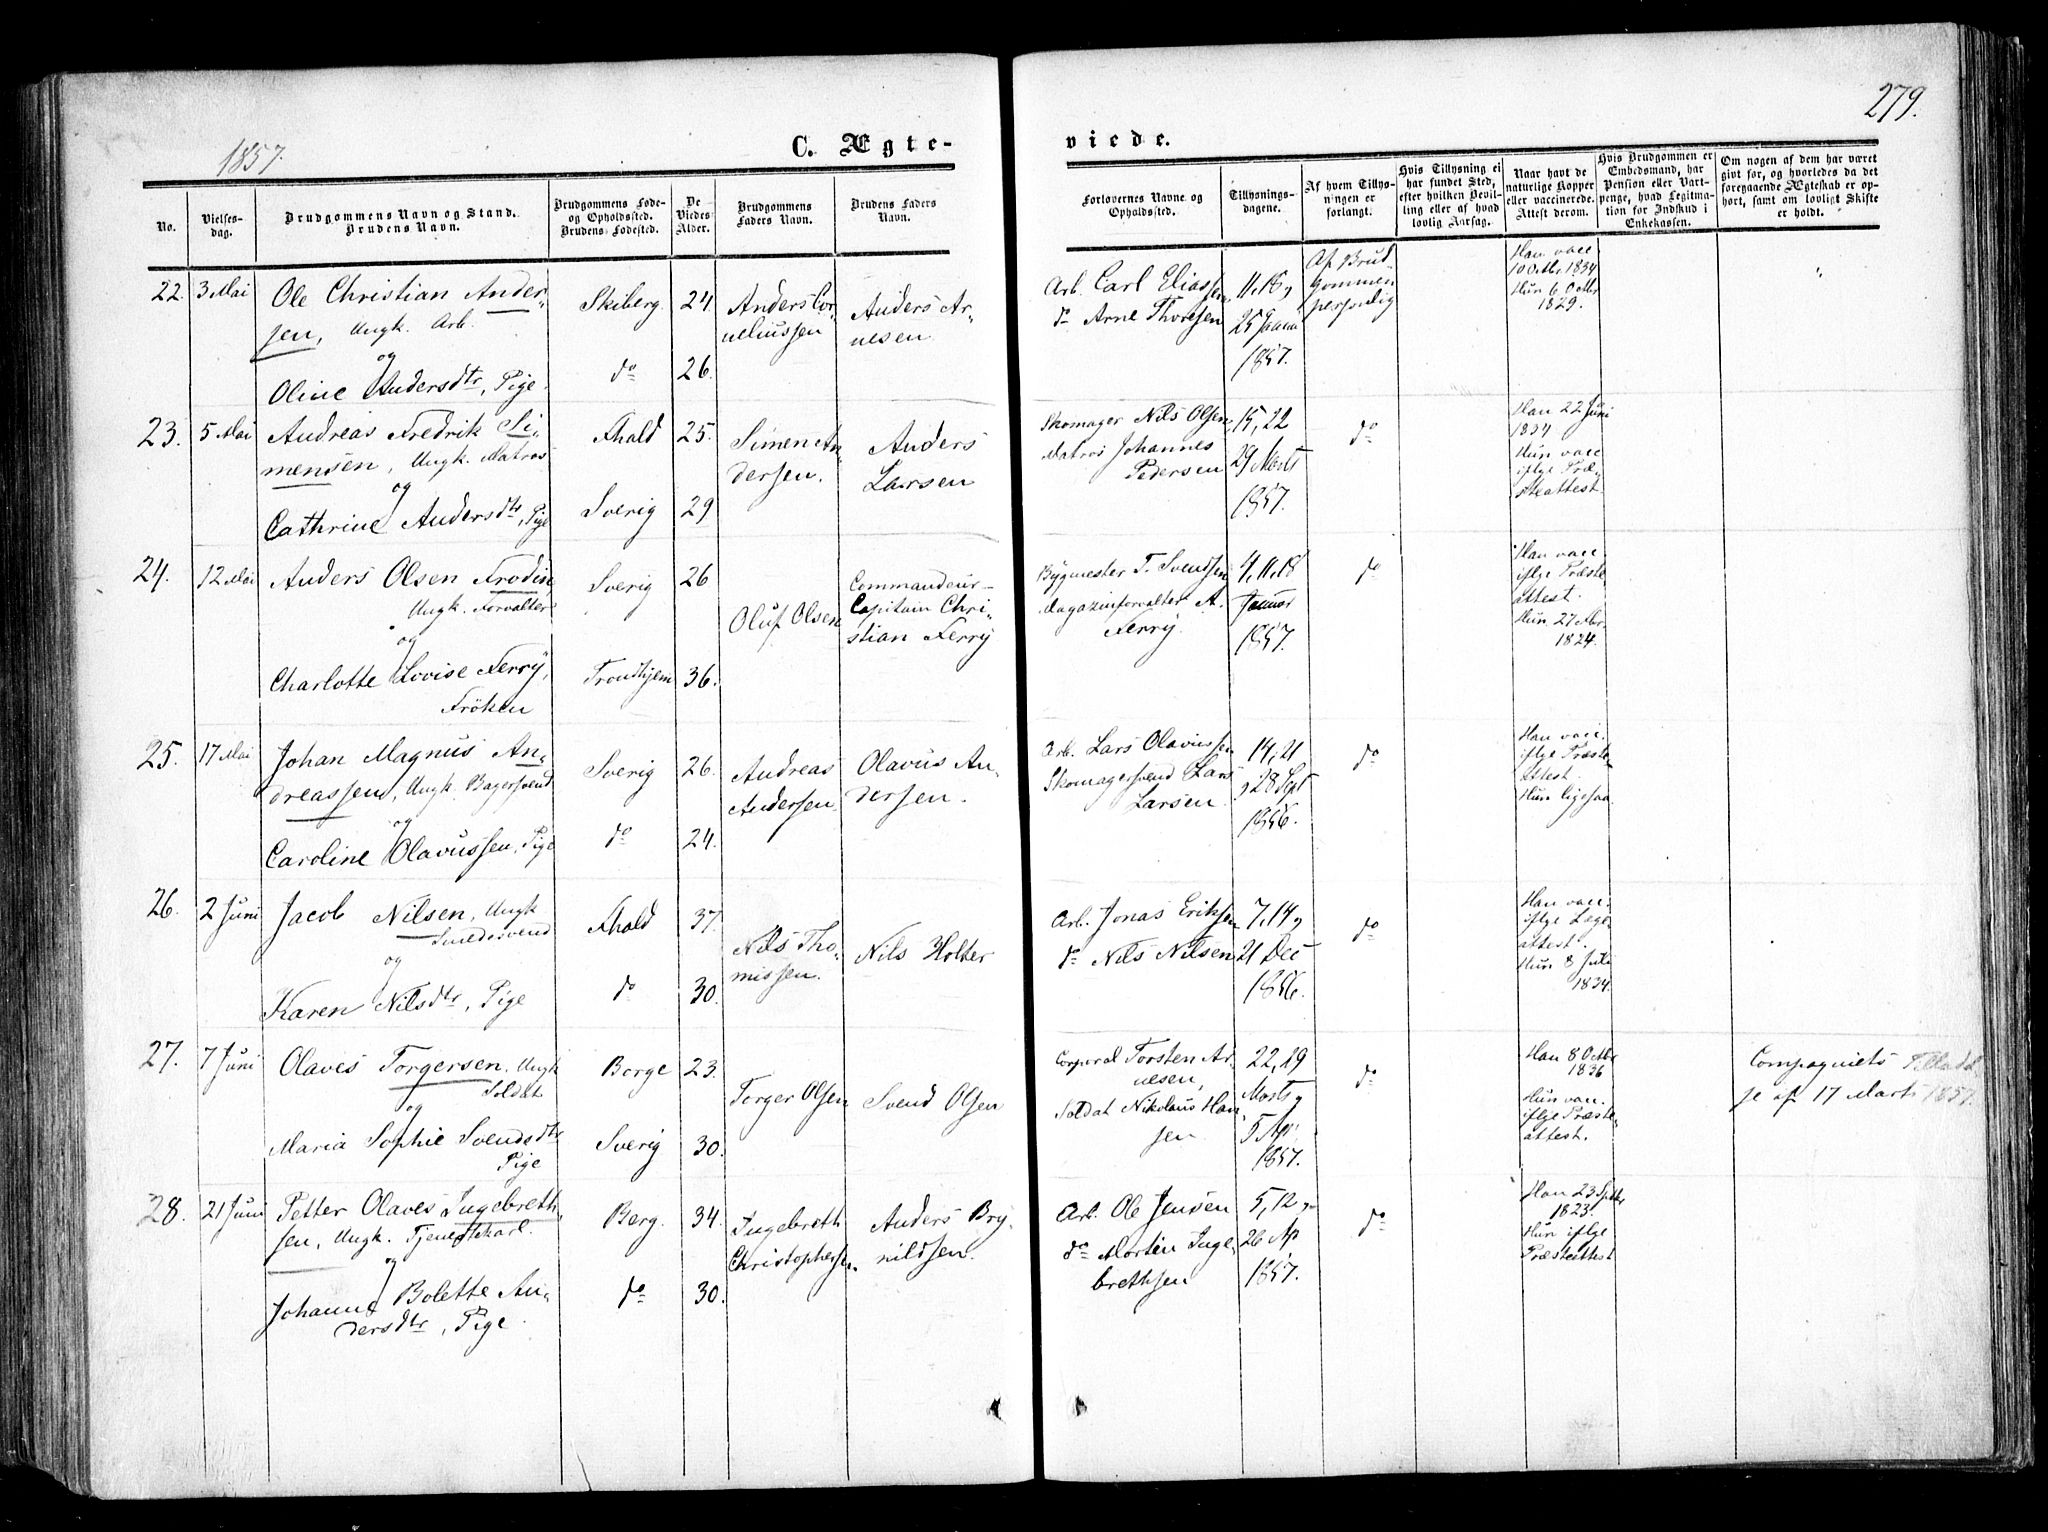 279.
1857.
C. Ægte-
viede.
No.
Vielses-
dag.
Brudgommens Navn og Stand.
Brudens Navn.
Brudgommens Føde-
og Opholdssted.
Brudens Fødested.
De
Viedes
Alder.
Brudgommens
Faders Navn.
Brudens Faders
Navn.
Forlovernes Navne og
Opholdssted.
Tillysnings-
dagene.
Af hvem Tillys-
ningen er
forlangt.
Hvis Tillysning ei
har fundet Sted,
efter hvilken Bevil-
ling eller af hvad
lovlig Aarsag.
Naar havt de
naturlige Kopper
eller vaccinerede.
Attest derom.
Hvis Brudgommen er
Embedsmand, har
Pension eller Vart-
penge, hvad Legitima-
tion for Indskud i
Enkekassen.
Om nogen af dem har været
givt før, og hvorledes da det
foregaaende Ægteskab er op-
hørt, samt om lovligt Skifte
er holdt.
22. 3 Mai
Ole Christian Ander-
sen, Ungk. Arb.
og
Oline Andersdtr, Pige.
Skiberg. 24
do 26.
Anders Cor-
neliussen
Anders Ar-
nesen.
Arb. Carl Eliassen
do Arne Thoresen
11, 18,
25
1857.
Af Brud-
gommen
personlig
Han vacc
10 Octbr 1834
Hun 6 Octbr
1829.
"
23. 5 Mai
Andreas Fredrik Si-
mensen, Ungk. Matros
og
Cathrine Andersdtr, Pige
Fhald 25.
Sverig 29
Simen An-
dersen.
Anders
Larsen
Skomager Nils Olsen,
Matros Johannes
Pedersen
15, 22
29 Marts
1857.
do
Han 22 Juni
1834
Hun vacc
iflge Præ-
steattest.
24. 12 Mai
Anders Olsen Frodin,
Ungk. Forvalter
og
Charlotte Lovise Ferry,
Frøken
Sverig 26
Trondhjem 36.
Oluf Olsen
Commandeur-
Capitain Chri-
stian Ferry
Bygmester T. Svendsen
Magazinforvalter A.
Ferry.
4, 11, 18
Januar
1857.
do
Han vacc.
iflge Præste
attest.
Hun 27
1824.
25. 17 Mai
Johan Magnus An-
dreassen, Ungk. Bagersvend
og
Caroline Olavussen, Pige
Sverig 26.
do 24.
Andreas
Andersen.
Olavus An-
dersen.
Arb. Lars Olavussen
Skomagersvend Lars
Larsen.
14, 21
28 Sept
1856.
do
Han vacc.
iflge Præste-
attest.
Hun ligesaa.
26. 2 Juni
Jacob Nilsen, Ungk
Smedesvend
og
Karen Nilsdtr, Pige
Fhald 37.
do 30.
Nils Tho-
missen.
Nils Holter
Arb. Jonas Eriksen
do Nils Nilsen
7, 14,
21 Dec
1856.
do
Han vacc.
iflge Læge
attest.
Hun 8 Juli
1834.
27. 7 Juni
Olaves Torgersen, Ungk
Soldat
og
Maria Sophie Svendsdtr
Pige
Borge 23.
Sverig 30.
Torger Olsen
Svend Olsen
Corporal Torsten Ar-
nesen,
Soldat Nikolaus Han-
sen
22, 29
Marts
5 Apr.
1857.
do
Han 8 Octbr
1836
Hun vacc.
iflge Præste-
attest.
Compagniets Tilladel-
se af 17 Marts 1857.
28. 21 Juni
Petter Olaves Ingebreth-
sen, Ungk. Tjenestekarl.
og
Johanne Bolette An-
dersdtr, Pige.
Berg. 34.
do 30.
Ingebreth
Christophersen.
Anders Bry-
nildsen.
Arb. Ole Jensen
do Morten Inge-
brethsen
5, 12,
26 Ap
1857.
do
Han 23 Septbr
1823.
Hun iflge
Præsteattest